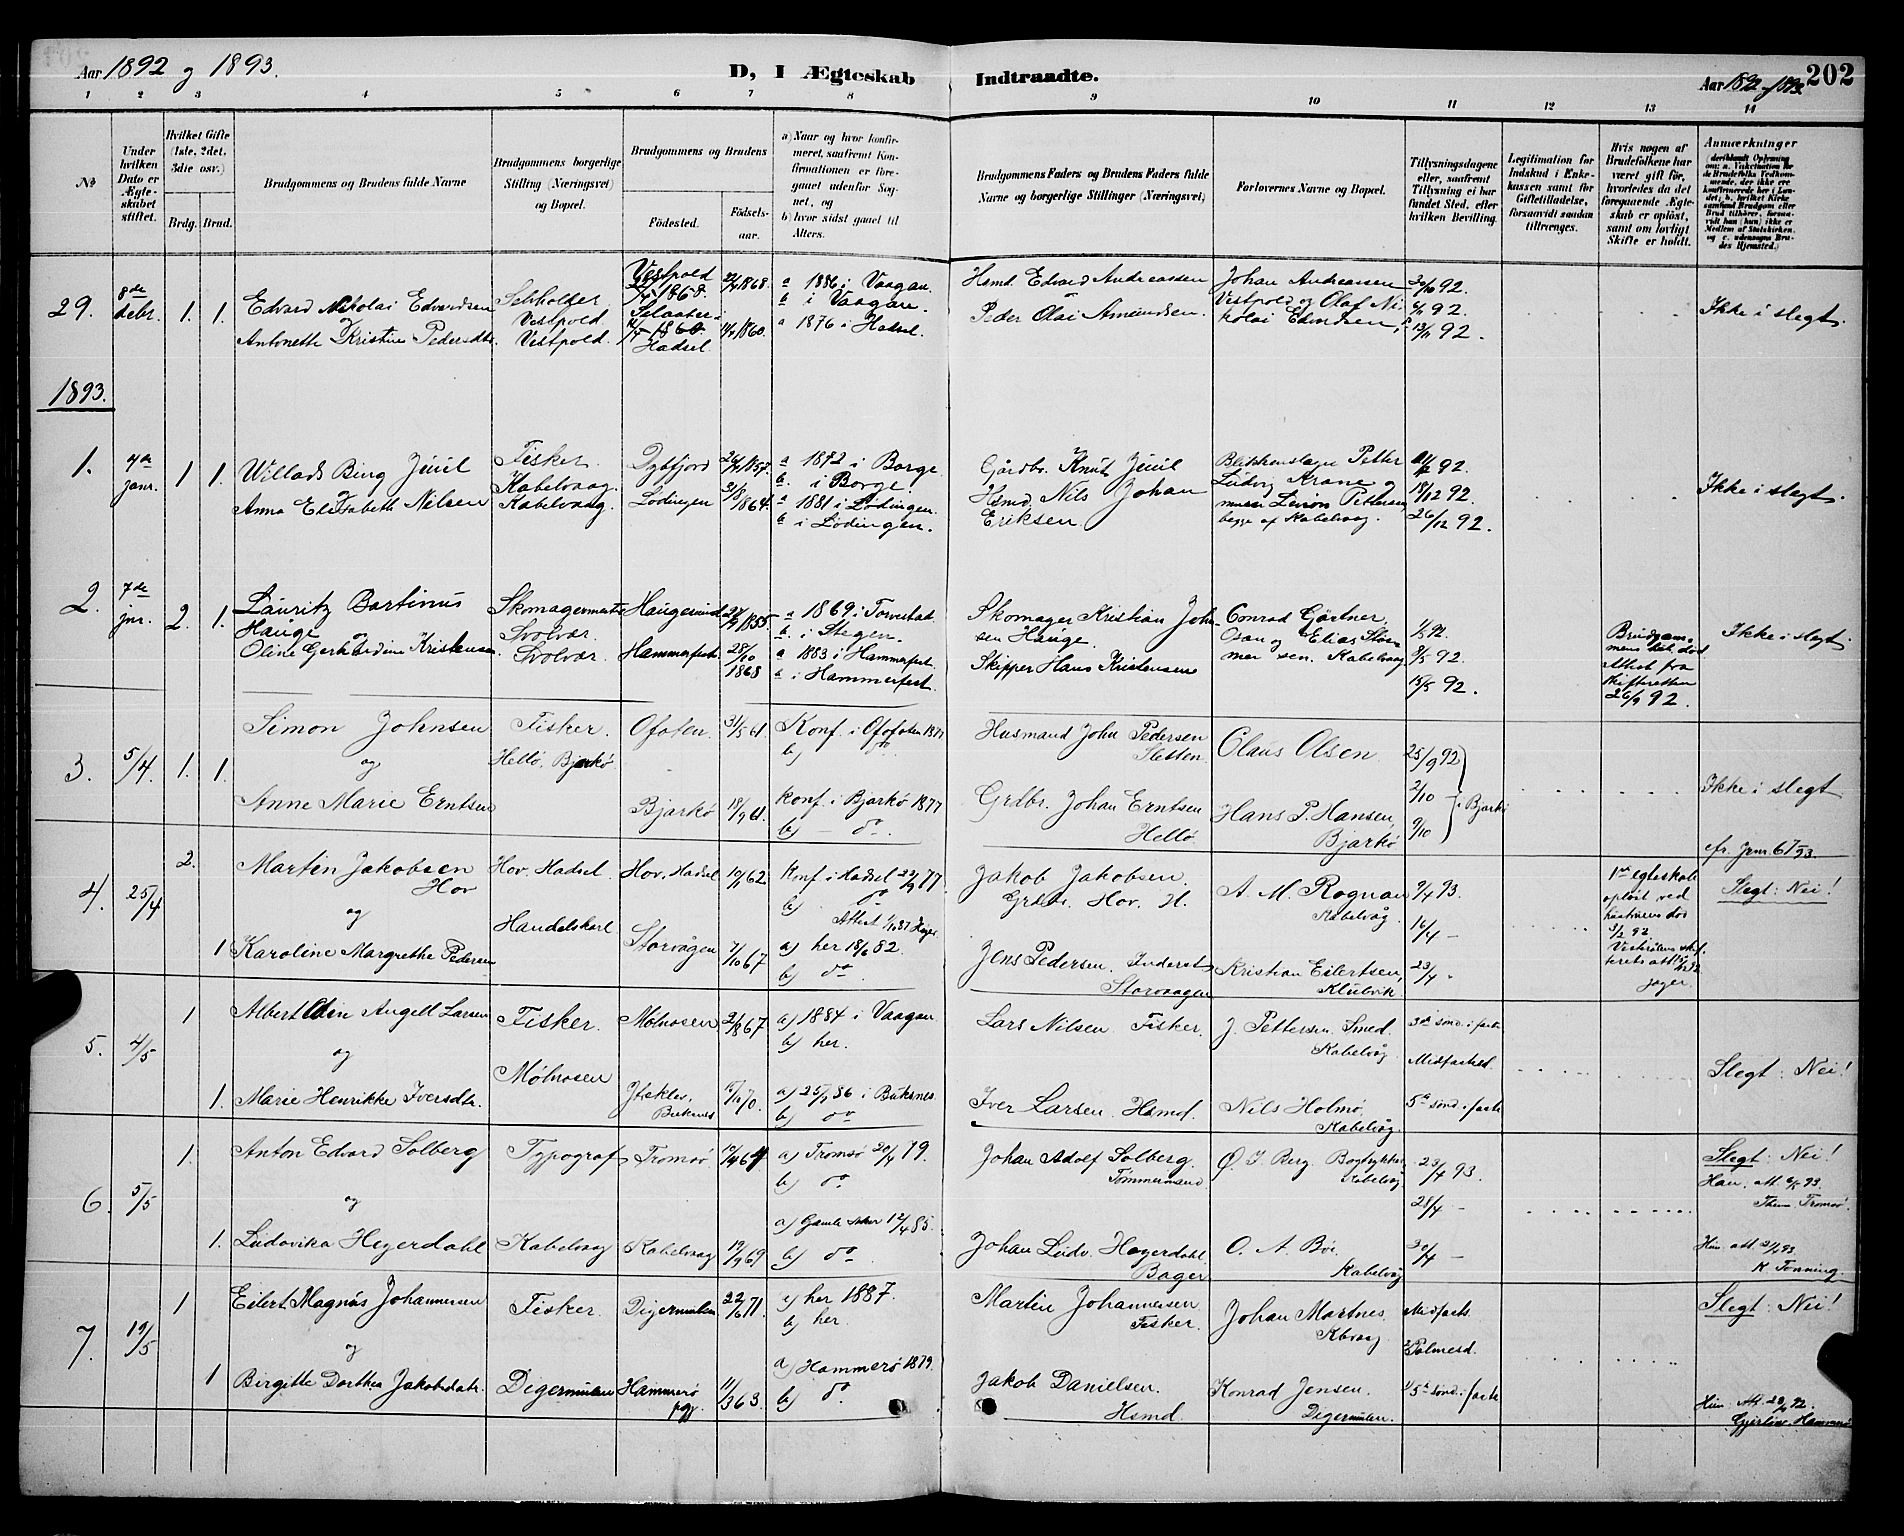 Aar 1892 og 1893.
D, I Ægteskab Indtraadte.
Aar 1892 og 1893.
202
1 2 3 4 5 6 7 8 9 10 11 12 13 14
No
Under hvilken Dato er Ægteskabet stiftet.
Hvilket Gifte (1ste, 2det, 3die osv.)
Brdg. Brud.
Brudgommens og Brudens fulde Navne
Brudgommens borgerlige Stilling (Næringsvei) og Bopæl.
Brudgommens og Brudens
Fødested.
Fødselsaar.
a) Naar og hvor konfirmeret, saafremt Konfirmationen er foregaaet udenfor Sognet, og
b) hvor sidst gaaet til Alters.
Brudgommens Faders og Brudens Faders fulde Navne og borgerlige Stillinger (Næringsvei)
Forlovernes Navne og Bopæl.
Tillysningsdagene eller, saafremt Tillysning ei har fundet Sted, efter hvilken Bevilling.
Legitimation for Indskud i Enkekassen samt for Giftetilladelse, forsaavidt saadan tiltrænges.
Hvis nogen af Brudefolkene har været gift før, hvorledes da det foregaaende Ægteskab er opløst, samt om lovligt Skifte er holdt.
Anmærkninger
29. 8de debr. 1. 1.
Edvard Nikolai Edvardsen
og
Antonette Kristine Pedersdtr.
Vestpold
Vestpold.
Vestpold
1868.
1860
Hadsel.
1868.
1860.
a 1886 i Vaagan.
b i Vaagan.
a 1876 i Hadsel.
Hsmd. Edvard Andreassen
Peder Olai Amundsen.
Johan Andreassen
Vestpold og Olaf Nikolai Edvardsen,
30/10 92.
6/11 92.
13/11 92.
Ikke i slegt.
1893.
1. 4de janr. 1 1.
Willads Bing Juul
og
Anna Elisabeth Nilsen
Fisker.
Kabelvaag.
Kabelvaag.
Dybfjord
Lødingen
1857.
31/8 1864.
a 1872 i Borge
b. i Borge.
a 1881 i Lødingen.
b i Lødingen.
Gårdbr. Knut Juul
Hsmd. Nils Johan
Eriksen
Petter
Ludvig Krane og
Pettersen
begge af Kabelvaag.
11/12 92.
18/12 92.
26/12 92.
Ikke i slegt.
2. 7de jnr. 2. 1.
Lauritz Bartinus
Hauge
og
Oline Gerhardine Kristensen
Skomagermester
Svolvær.
Svolvær.
Haugesund
Hammerfest
1855.
28/10 1868
a 1869 i Torvestad
b. i Stegen.
a 1883 i Hammerfest.
b i Hammerfest.
Skomager Kristian John-
sen Hauge.
Skipper Hans Kristensen
Conrad Gårtner,
Osan og Elias
Kabelvaag
1/5 92.
8/5 92.
15/5 92.
Brudgom-
mens
Attest fra
Skifteretten
26/9 92.
Ikke i slegt.
3. 5/4. 1. 1.
Simon Johnsen
og
Anne Marie Erntsen
Fisker.
Hellø. Bjarkø
Ofoten.
Bjarkø
31/5 61.
18/9 61.
Konf. i Ofofoten 1877
b) do
Konf. i Bjarkø 1877
b) — do.
Husmand John Pedersen
Sletten.
Grdbr. Johan Erntsen
Hellø.
Claus Olsen.
Hans P. Hansen,
Bjarkø
25/9 92
2/10 — Bjarkø
9/10
Ikke i slegt
cfr. Jrnr. 67/93.
4. 25/4 2. 1
Martin Jakobsen
Hov
og
Karoline Margrethe Pedersen
Hov. Hadsel.
Handelskarl
Hov. Hadsel
Storvågen
10/11 62
7/10 67
Konf. i Hadsel 77.
b) do
a) her 18/6 82.
b) do.
Jakob Jakobsen.
Grdbr. Hov. H.
Jens Pedersen. Inderst
Storvaagen
A. M. Rognan
Kabelvåg
Kristian Eilertsen,
Klubvik
9/4 93.
16/4 —
23/4 -
1ste egteskab
opløst ved
hustruens død
3/2 92
Slegt: Nei!
5. 4/5 1 1.
Albert Odin Angell Larsen
og
Marie Henrikke Iversdtr.
Fisker.
Mølnosen
Mølnosen
Buksnes
2/8 67
a) 1884 i Vaagan
b) her.
a) 25/7 86 i Buksnes.
b) do
Lars Nilsen. Fisker.
Iver Larsen. Hsmd.
J. Pettersen Smed.
Kabelvåg.
Nils Holmø,
Kabelvåg.
3de sønd. i faste
Midfasted.
5te sønd. i faste
Slegt: Nei!
6. 5/5 1. 1.
Anton Edvard Solberg
og
Ludovika Heyerdahl
Typograf
Kabelvaag
Tromsø.
Kabelvaag
19/9 69
a) Tromsø 20/4 79.
b) do.
a) Gamle Aker 12/4 85.
b) do
Johan Adolf Solberg.
Tømmermand.
Johan Ludv. Heyerdahl
Bager
Ø. J. Berg. Bogtrykker
Kabelvåg
O. A. Bøe.
Kabelvåg
23/4 93.
28/4 —
30/4 —
Slegt: Nei!
Han. att. 93.
Tromsø.
Hun. att. 93.
K. Tønning.
7. 19/5 1 1
Eilert Magnus Johannesen
og
Birgitte Dorthea Jakobsdatr.
Fisker.
Digermulen
Digermulen
Hammerø
22/6 71.
11/3 63.
a) her 1887.
b) her.
a) Hammerø 1879.
b) do.
Martin Johannesen
Fisker.
Jakob Danielsen.
Hsmd.
Johan Martnes.
Kbvaag.
Konrad Jensen.
Digermulen.
Midfasts.
Palmesd.
5te sønd. i faste
Slegt: Nei!
Hun. Att. 92.
Hammerø